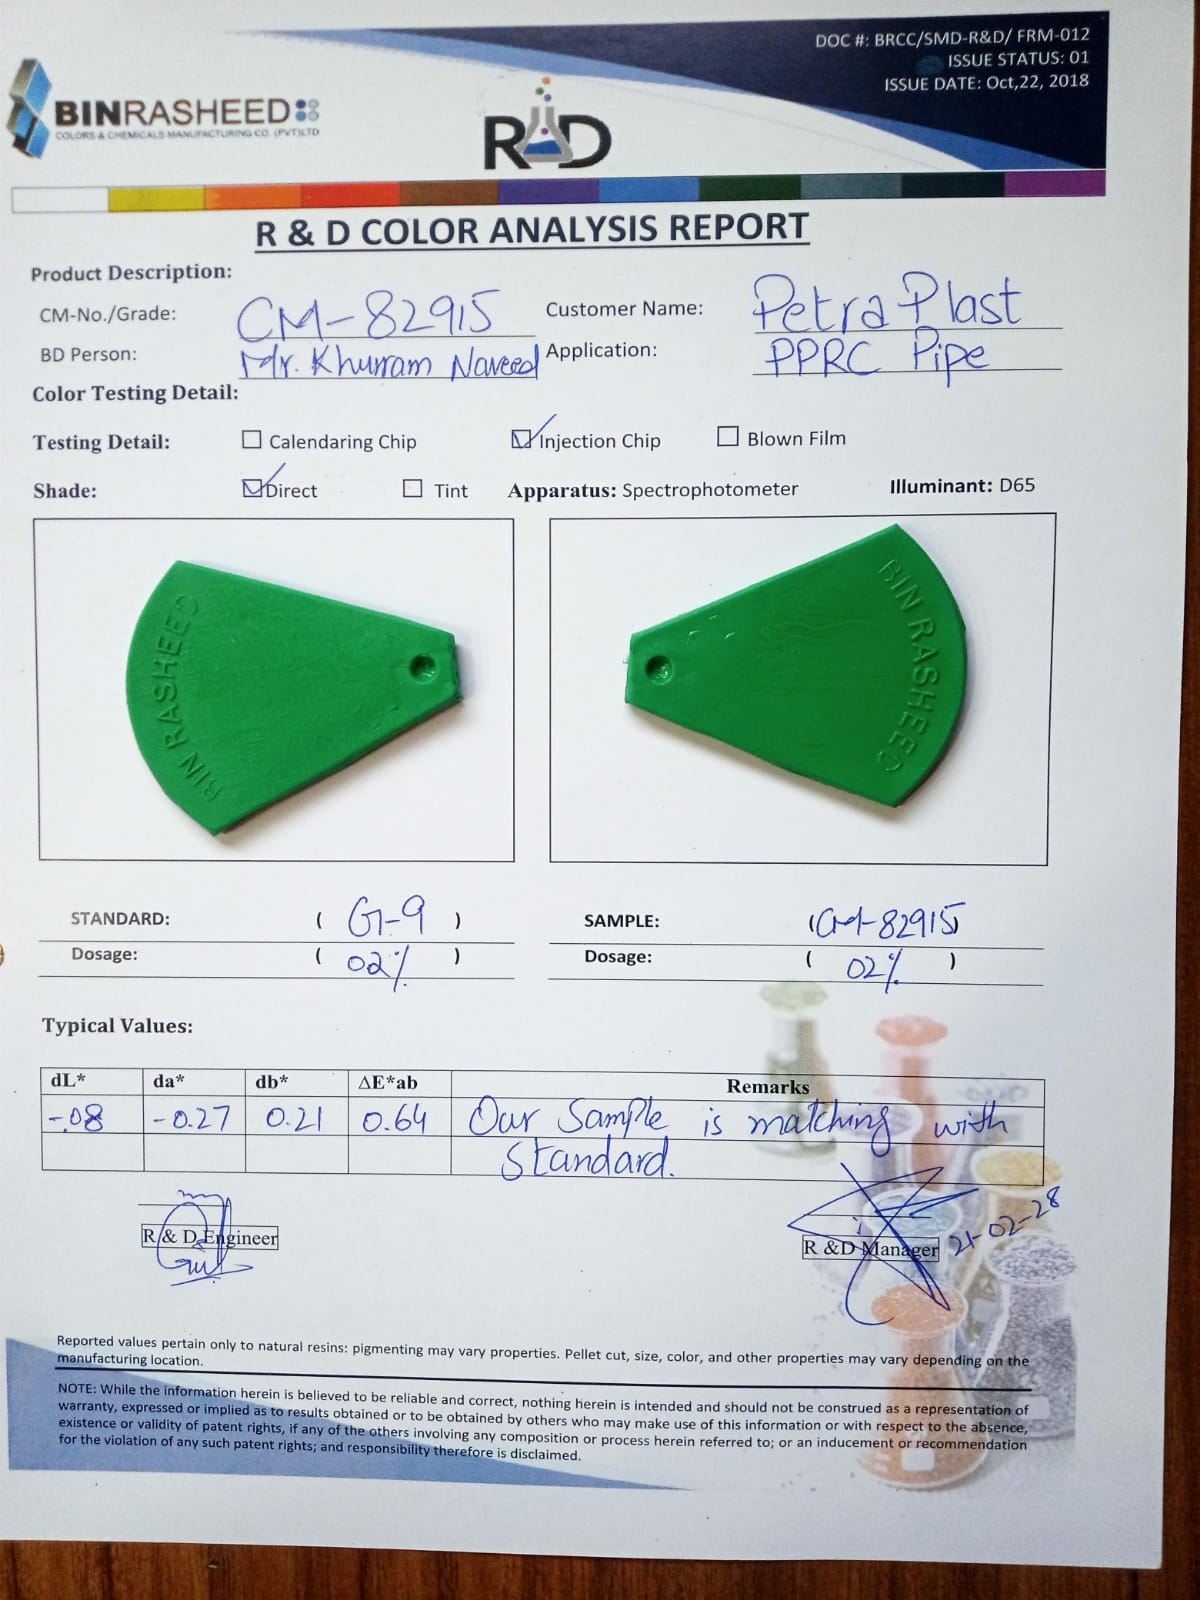 DOC #: BRCC/SMD-R&D/ FRM-012
ISSUE STATUS: 01
ISSUE DATE: Oct,22, 2018
BINRASHEED
COLORS & CHEMICALS MANUFACTURING CO. (PVT)LTD
R&D
R & D COLOR ANALYSIS REPORT
Product Description:
CM-No./Grade: CM-82915 Customer Name: Petra Plast
BD Person: Mr. Khurram Naveed Application: PPRC Pipe
Color Testing Detail:
Testing Detail: Calendaring Chip Injection Chip Blown Film
Shade: Direct Tint Apparatus: Spectrophotometer Illuminant: D65
BIN RASHEED
BIN RASHEED
STANDARD: ( G-9 ) SAMPLE: (CM-82915)
Dosage: ( 02% ) Dosage: ( 02% )
Typical Values:
dL* da* db* ΔE*ab Remarks
-.08 -0.27 0.21 0.64 Our Sample is matching with
Standard.
R & D Engineer
R &D Manager 21-02-28
Reported values pertain only to natural resins: pigmenting may vary properties. Pellet cut, size, color, and other properties may vary depending on the
manufacturing location.
NOTE: While the information herein is believed to be reliable and correct, nothing herein is intended and should not be construed as a representation of
warranty, expressed or implied as to results obtained or to be obtained by others who may make use of this information or with respect to the absence,
existence or validity of patent rights, if any of the others involving any composition or process herein referred to; or an inducement or recommendation
for the violation of any such patent rights; and responsibility therefore is disclaimed.